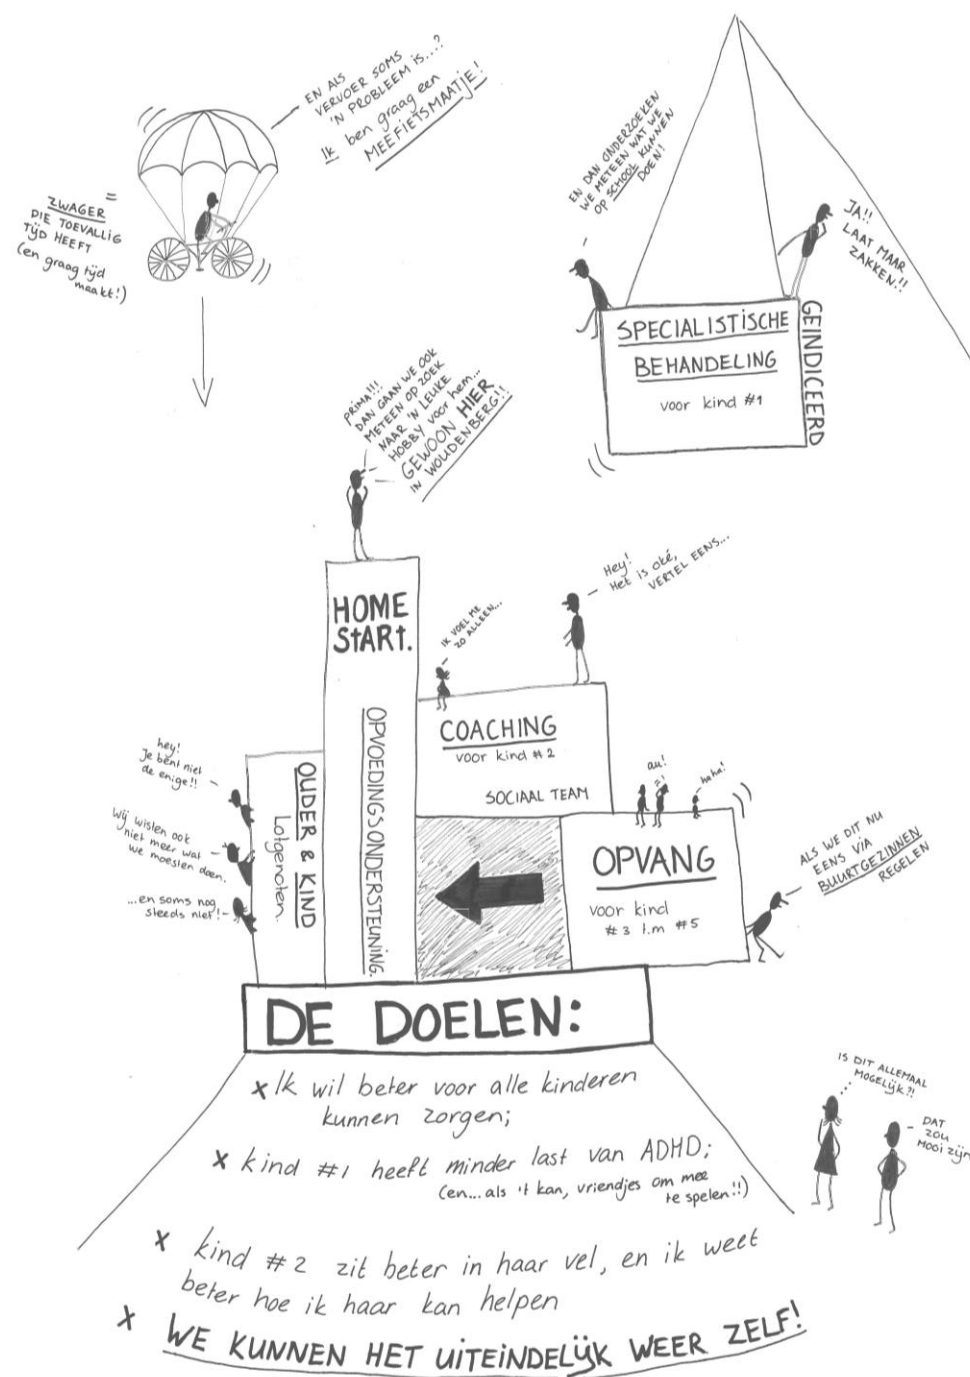 EN ALS
VERVOER SOMS
'N PROBLEEM IS...?
Ik ben graag een
MEEFIETSMAATJE!
ZWAGER =
DIE TOEVALLIG
TIJD HEEFT
(en graag tijd
maakt!)
EN DAN ONDERZOEKEN
WE METEEN WAT WE
OP SCHOOL KUNNEN
DOEN!
JA!!
LAAT MAAR
ZAKKEN!!
SPECIALISTISCHE
BEHANDELING
voor kind #1
GEINDICEERD
PRIMA!!!!
DAN GAAN WE OOK
METEEN OP ZOEK
NAAR 'N LEUKE
HOBBY voor hem...
GEWOON HIER
IN WOUDENBERG!!
HOME
StARt.
OPVOEDINGSONDERSTEUNING.
IK VOEL ME
ZO ALLEEN...
Hey!
Het is oké,
VERTEL EENS...
COACHING
voor kind #2
SOCIAAL TEAM
hey!
Je bent niet
de enige!!
Wij wisten ook
niet meer wat
we moesten doen.
...en soms nog
steeds niet!
OUDER & KIND
Lotgenoten.
au!
haha!
OPVANG
voor kind
#3 t.m #5
ALS WE DIT NU
EENS VIA
BUURTGEZINNEN
REGELEN
DE DOELEN:
x Ik wil beter voor alle kinderen
kunnen zorgen;
x kind #1 heeft minder last van ADHD;
(en...als 't kan, vriendjes om mee
te spelen!!)
x kind #2 zit beter in haar vel, en ik weet
beter hoe ik haar kan helpen
x WE KUNNEN HET UITEINDELIJK WEER ZELF!
IS DIT ALLEMAAL
MOGELIJK?!
DAT
ZOU
MOOI ZIJN